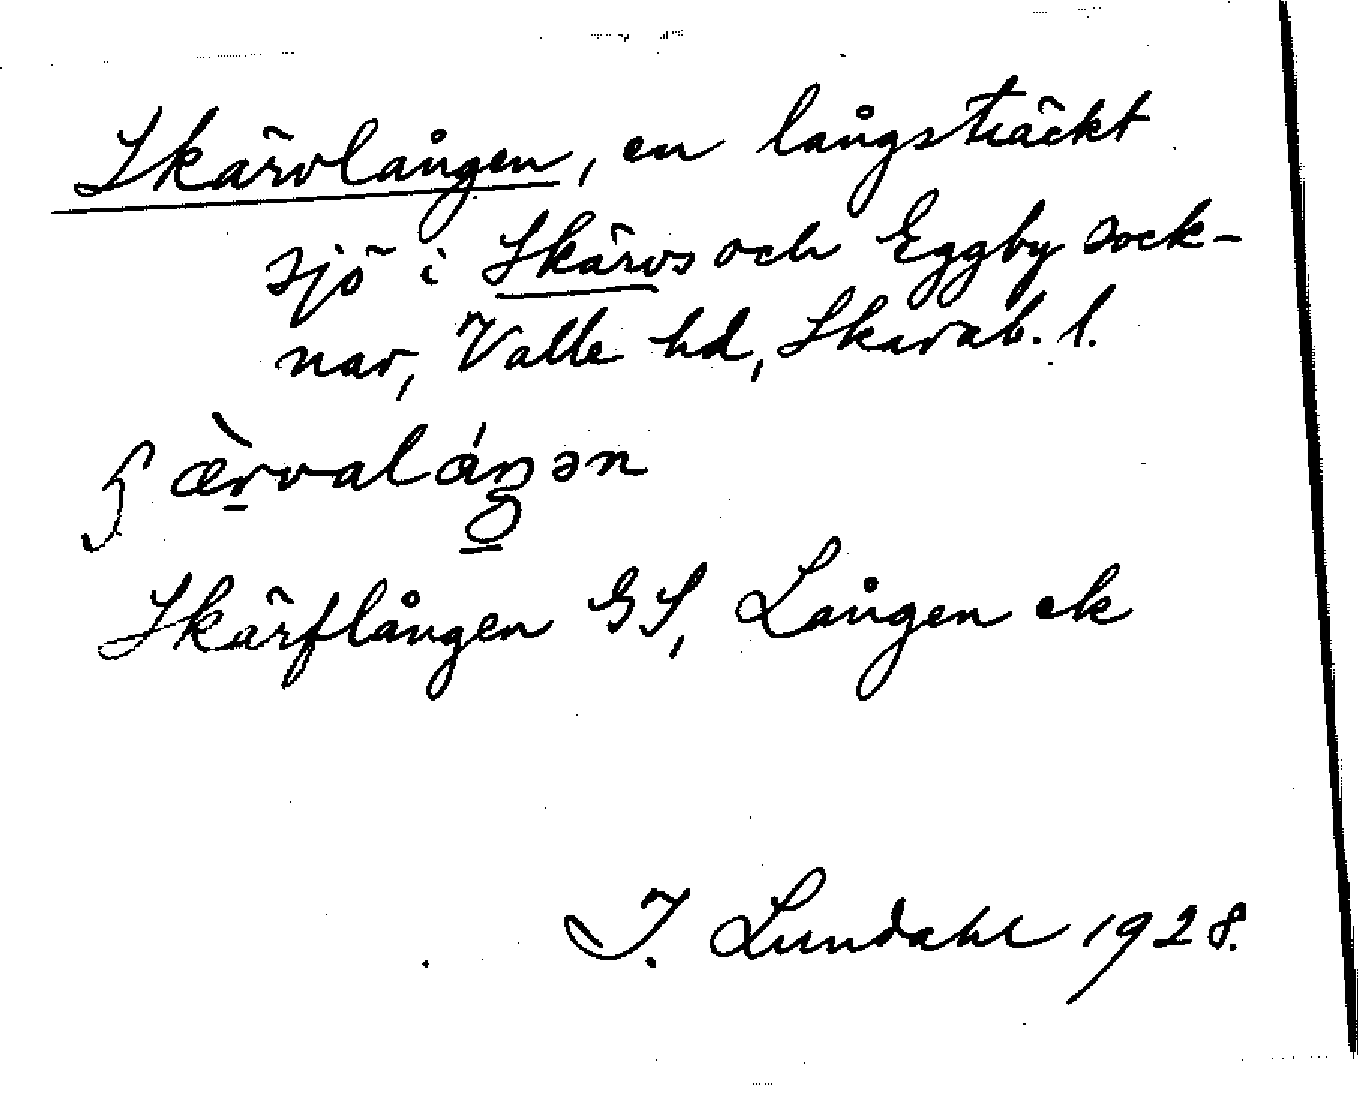 Skärvlången, en långsträckt
sjö i Skärvs och Eggby sock-
nar, Valle hd, Skarab. l.
ʃæ̀rvaláŋən
Skärflången GS, Lången ek
I. Lundahl 1928.